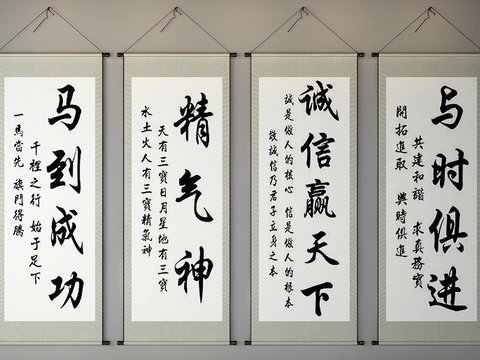 与时俱进
共建和諧 求真務實
開拓進取 與時俱進
诚信赢天下
誠是做人的核心 信是做人的根本
敬誠信乃君子立身之本
精气神
天有三寶日月星地有三寶
水土火人有三寶精氣神
马到成功
千裡之行 始于足下
一馬當先 旗開得勝